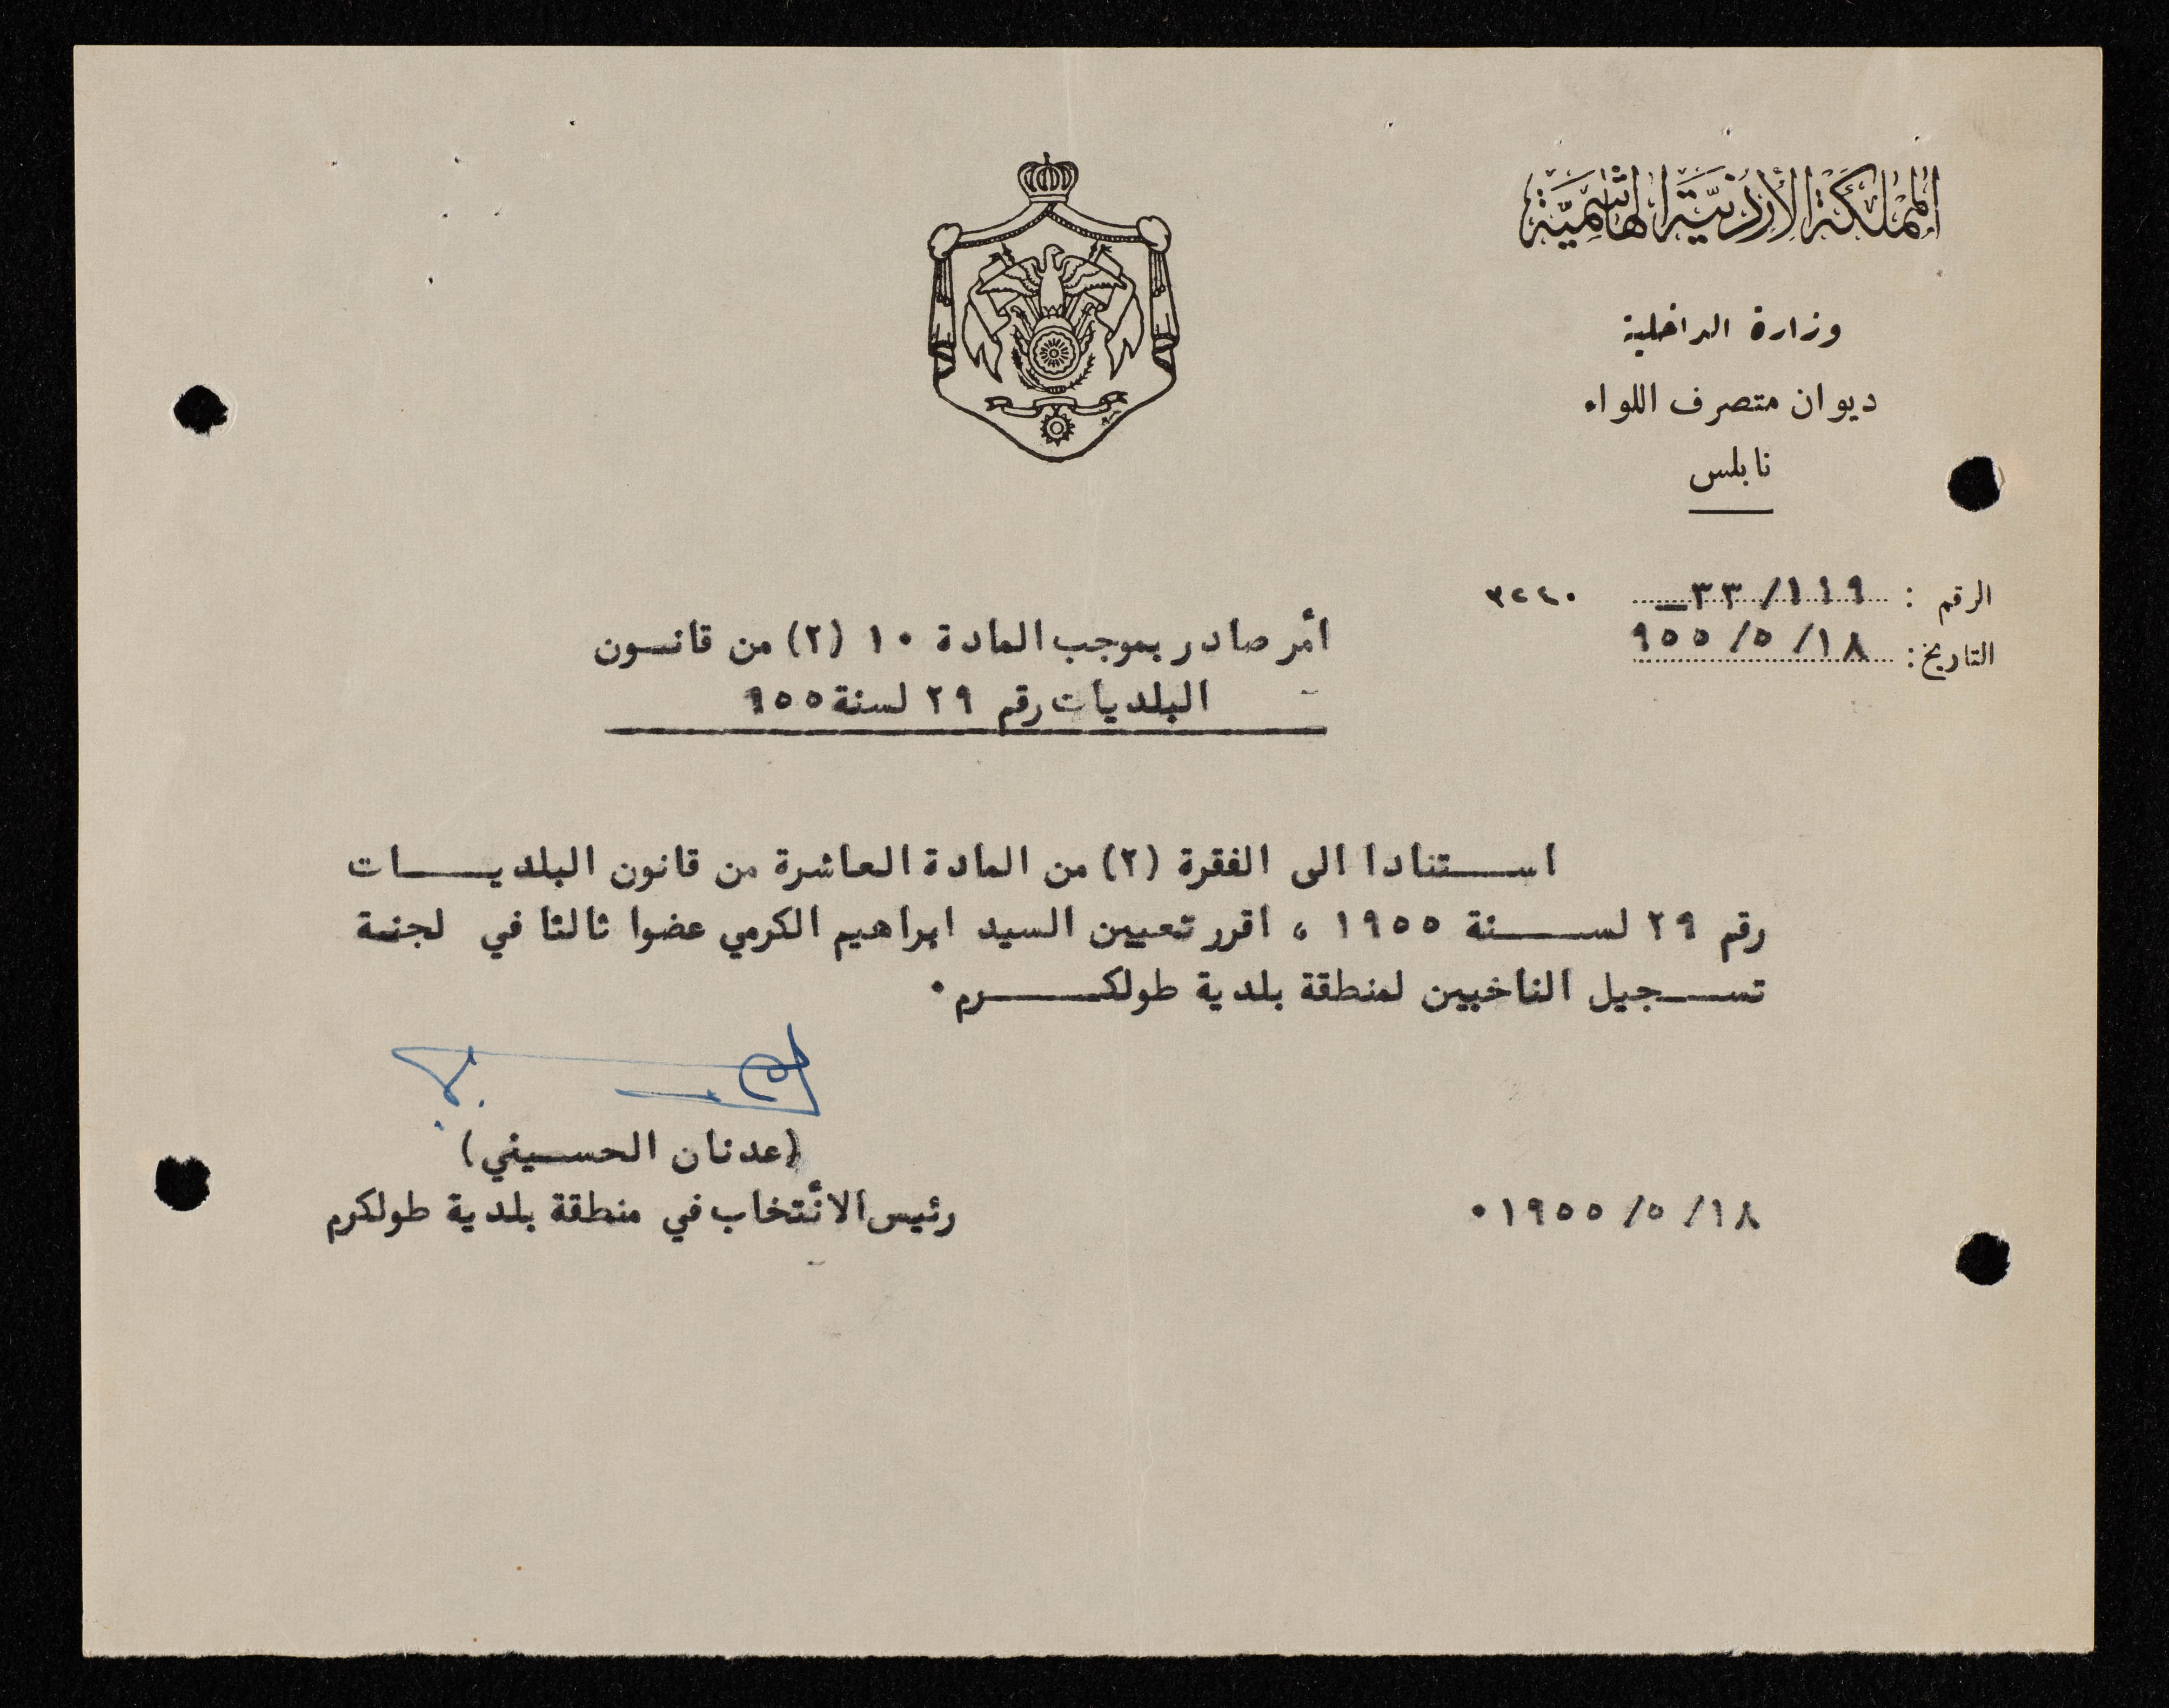 المملكة الأردنية الهاشمية
وزارة الداخلية
ديوان متصرف اللواء
نابلس
الرقم : ٣٣/١١٩ــ ٣٢٤٠
التاريخ : ١٨/ ٥/ ٩٥٥
أمر صادر بموجب المادة ١٠ (٢) من قانـــون
البلديات رقم ٢٩ لسنة ٩٥٥
اســـتنادا الى الفقرة (٢) من المادة العاشرة من قانون البلديـــــات
رقم ٢٩ لســـــنة ١٩٥٥ ، اقرر تعيين السيد ابراهيم الكرمي عضوا ثالثا في لجنـة
تســـجيل الناخبين لمنطقة بلدية طولكـــــرم.
(عدنان الحســيني)
رئيس الانتخاب في منطقة بلدية طولكرم
١٨/ ٥/ ١٩٥٥.